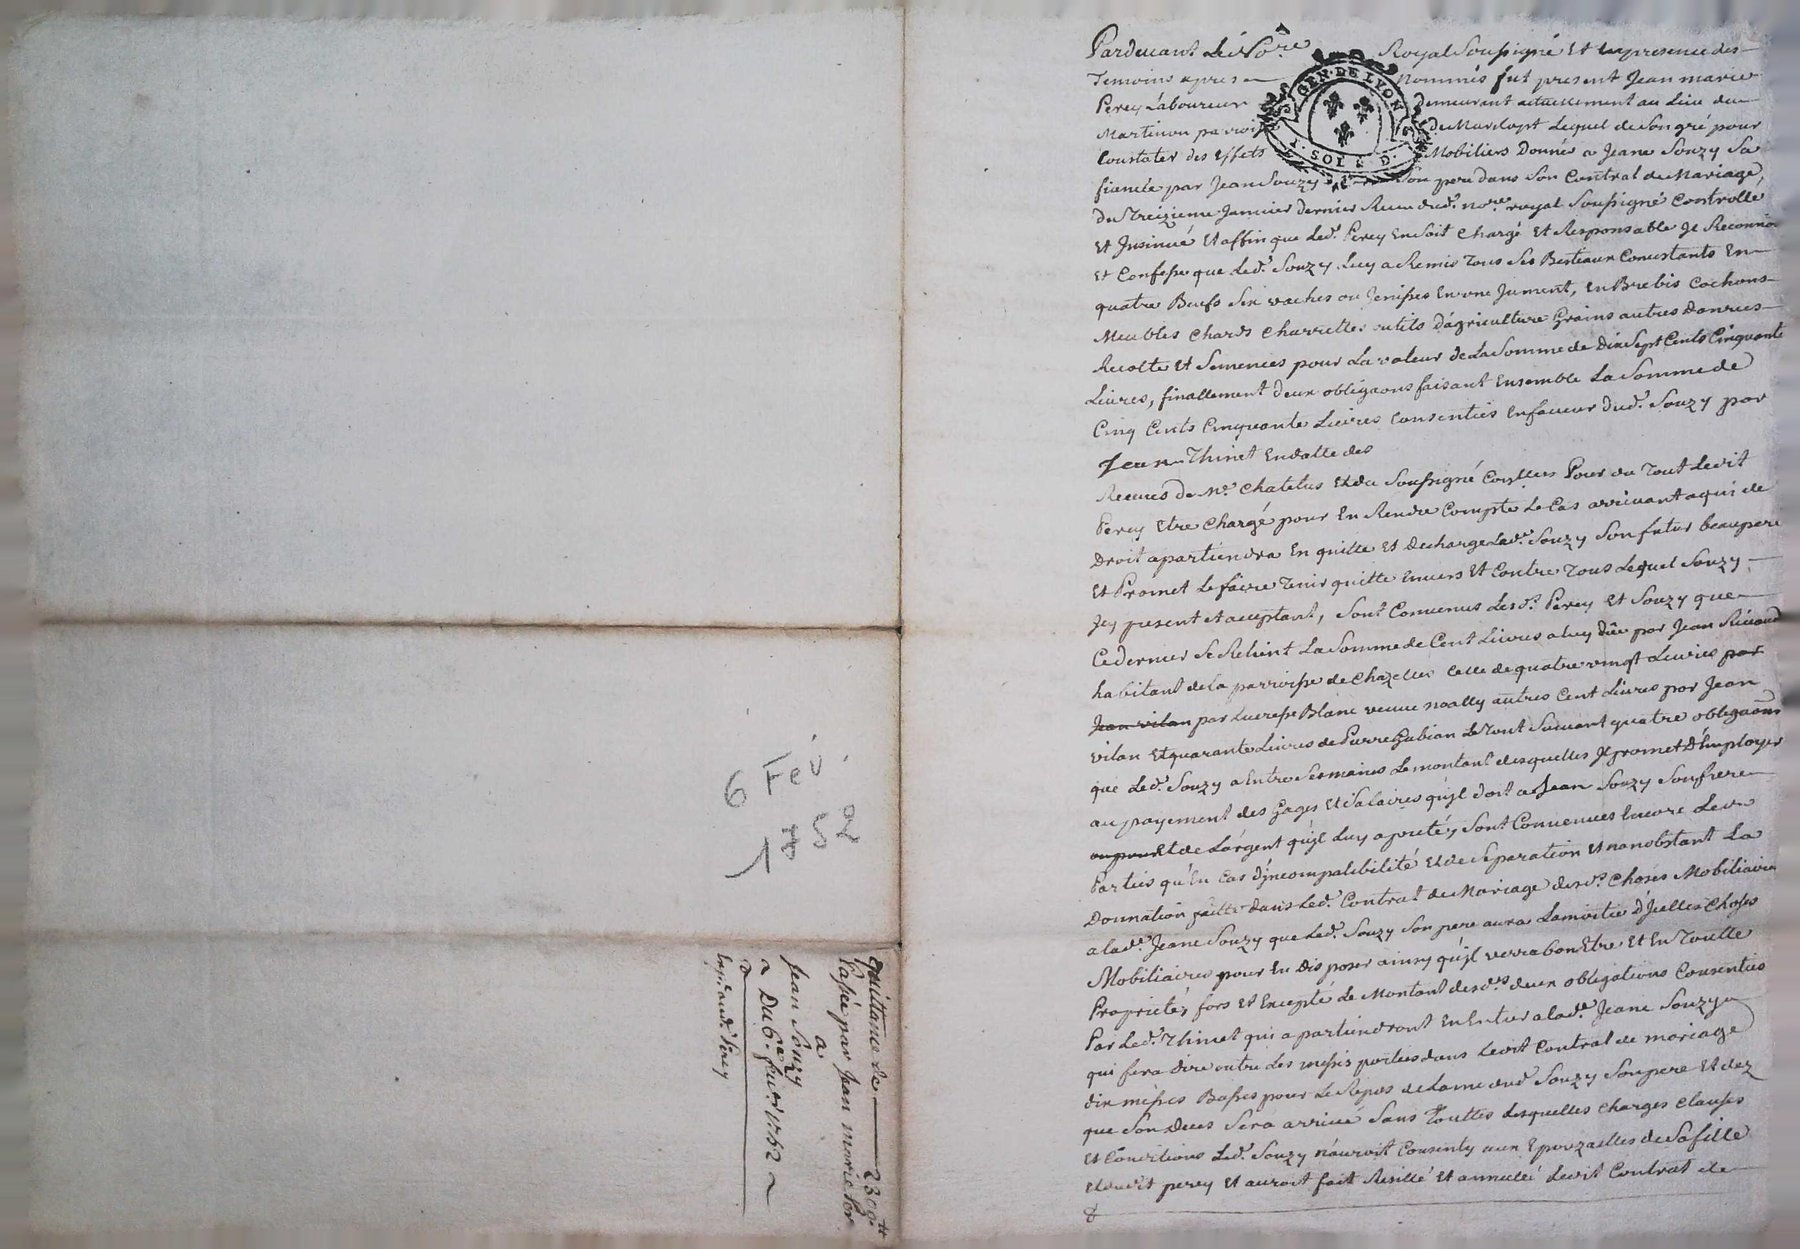 6 Fev.
1752
Quittance de 2300tt
Passée par Jean marie Perey
a
Jean Souzy
Du 6e. fevr. 1752
Exp. aud. Perey
Pardevant Le No.re Royal Soussigné Et en presence des
Temoins apres nommés fut present Jean marie
Perey Laboureur demeurant actuellement au Lieu de
Martinon parroisse de Mardopt Lequel de Son gré pour
Constater des Effets Mobiliers Donnés a Jeane Souzy Sa
GEN. DE LYON
SOL D.
fiancée par Jean Souzy Son pere dans Son Contrat de Mariage,
du Treizieme Janvier dernier Receu dud. no.re royal Soussigné Controllé
Et Insinué Et affin que Led. Perey En Soit Chargé Et Responsable Il Reconnoit
Et Confesse que Led. Souzy Luy a Remis Tous Ses Bestiaux Consistants En
quatre Bœufs Six vaches ou Jenisses En une Jument, En Brebis Cochons
Meubles Chards Charrettes outils d'agriculture Grains autres Danrées
Recolte Et Semences pour La valeur de La Somme de Dix Sept Cents Cinquante
Livres, finallement deux obligaons faisant Ensemble La Somme de
Cinq Cents Cinquante Livres Consenties En faveur dud. Souzy par
Jean Thinet En datte des
Receues de Me. Chatelus Et du Soussigné Pour du Tout Ledit
Perey Etre Chargé pour En Rendre Compte Le Cas arrivant a qui de
Droit apartiendra En quitte Et decharge Led. Souzy Son futur beaupere
Et Promet Le faire Tenir quitte Envers Et Contre Tous Lequel Souzy
Icy present Et acceptant, Sont Convenus Lesd. Perey Et Souzy que
Ce dernier Se Retient La Somme de Cent Livres a luy düe par Jean
habitant de la parroisse de Chazelles Celle de quatre vingt Livres par
Jean vilan par Lucresse Blanc veuve noally autres Cent Livres par Jean
vilan Et quarante Livres de Pierre Gubian Le Tout Suivant quatre obligaons
que Led. Souzy a Entre Ses mains Le montant desquelles Il promet D'Employer
au payement des gages Et Salaires qu'il doit a Jean Souzy Son frere
Et de L'argent qu'il Luy a preté, Sont Convenues Encore Les
Parties qu'En Cas d'incompatibilité Et de Separation Et nanobstant La
Donnation faitte dans Led. Contrat de Mariage desd. Choses Mobiliaires
a lad. Jeane Souzy que Led. Souzy Son pere aura La moitié d'Icelles Choses
Mobiliaires pour En Disposer ainsy qu'il verra bon Etre Et En Toutte
Proprieté, fors Et Excepté Le Montant desd. deux obligations Consenties
Par Led. Thinet qui apartiendront En Entier a lad. Jeane Souzy
qui fera dire outre Les messes portées dans Ledit Contrat de mariage
dix messes Basses pour Le Repos de Lame dud. Souzy Son pere Et dez
que Son Deces Sera arrivé Sans Touttes Lesquelles Charges Clauses
Et Conditions Led. Souzy n'auroit Consenty aux Epouzailles de Sa fille
Et dudit perey Et auroit fait Resillé Et annullé Ledit Contrat de